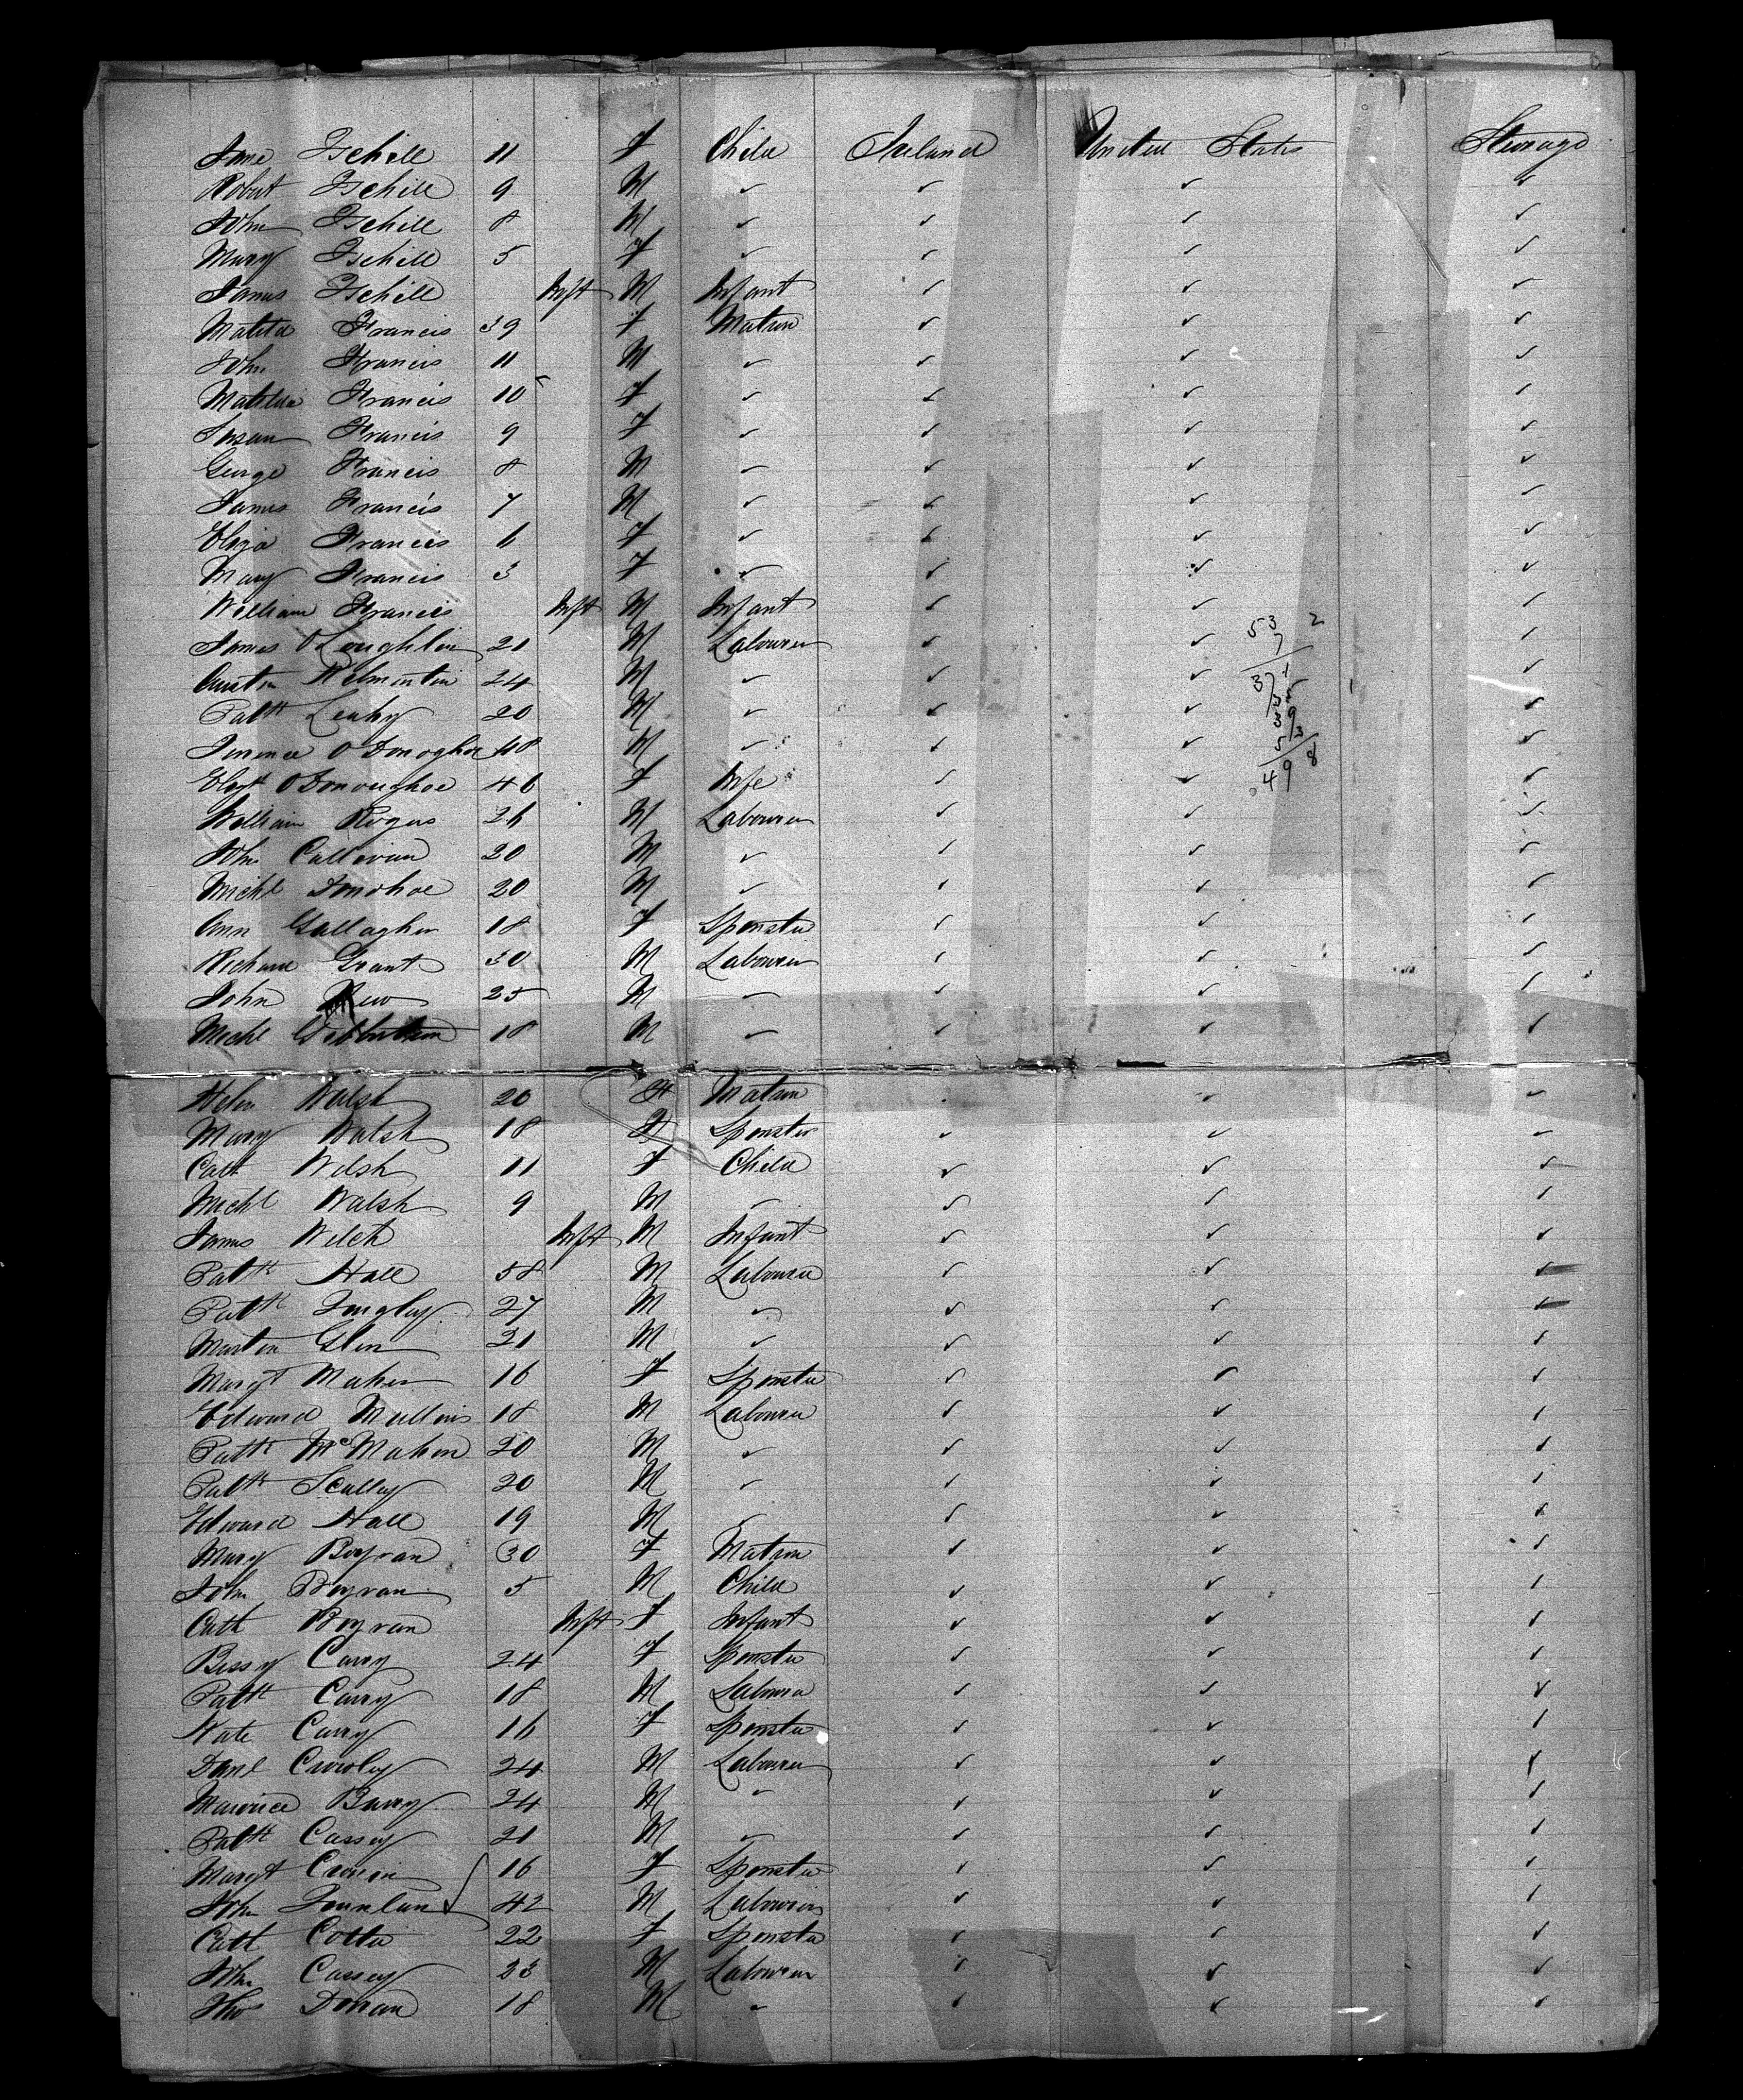 Jane Ischill 11 F Child Ireland United States Steerage
Robert Ischill 9 M ✓ ✓ ✓ ✓
John Ischill 8 M ✓ ✓ ✓ ✓
Mary Ischill 5 F ✓ ✓ ✓ ✓
James Ischill Inft M Infant ✓ ✓ ✓
Matilda Francis 39 F Matron ✓ ✓ ✓
John Francis 11 M ✓ ✓ ✓ ✓
Matilda Francis 10 F ✓ ✓ ✓ ✓
Susan Francis 9 F ✓ ✓ ✓ ✓
George Francis 8 M ✓ ✓ ✓ ✓
James Francis 7 M ✓ ✓ ✓ ✓
Eliza Francis 6 F ✓ ✓ ✓ ✓
Mary Francis 3 F ✓ ✓ ✓ ✓
William Francis Inft M Infant ✓ ✓ ✓
James O'Loughlin 21 M Labourer ✓ ✓ ✓
Austin Kilmartin 24 M ✓ ✓ ✓ ✓
Patk Leahy 20 M ✓ ✓ ✓ ✓
Terence O'Donoghoe 48 M ✓ ✓ ✓ ✓
Elizt O'Donoughoe 46 F Wife ✓ ✓ ✓
William Rogers 26 M Labourer ✓ ✓ ✓
John Callivan 20 M ✓ ✓ ✓ ✓
Michl Donohoe 20 M ✓ ✓ ✓ ✓
Ann Gallagher 18 F Spinster ✓ ✓ ✓
Richard Grant 30 M Labourer ✓ ✓ ✓
John 25 M ✓ ✓ ✓ ✓
Michl 18 M ✓ ✓ ✓ ✓
Helen Walsh 20 F Matron ✓ ✓
Mary Walsh 18 F Spinster ✓ ✓ ✓
Cath Welsh 11 F Child ✓ ✓ ✓
Michl Walsh 9 M ✓ ✓ ✓ ✓
James Welch Inft M Infant ✓ ✓ ✓
Patk Hall 58 M Labourer ✓ ✓ ✓
Patk 27 M ✓ ✓ ✓ ✓
Martin Glen 21 M ✓ ✓ ✓ ✓
Margt Maher 16 F Spinster ✓ ✓ ✓
Edward Mullins 18 M Labourer ✓ ✓ ✓
Patk McMahon 20 M ✓ ✓ ✓ ✓
Patk Scalley 20 M ✓ ✓ ✓ ✓
Edward Hall 19 M ✓ ✓ ✓ ✓
Mary Boyran 30 F Matron ✓ ✓ ✓
John Boyran 5 M Child ✓ ✓ ✓
Cath Boyran Inft F Infant ✓ ✓ ✓
Bessy Carry 24 F Spinster ✓ ✓ ✓
Patk Carry 18 M Labourer ✓ ✓ ✓
Kate Carry 16 F Spinster ✓ ✓ ✓
Danl Crowley 24 M Labourer ✓ ✓ ✓
Maurice Barry 24 M ✓ ✓ ✓ ✓
Patk Cassey 21 M ✓ ✓ ✓ ✓
Margt Cronin 16 F Spinster ✓ ✓ ✓
John 42 M Labourer ✓ ✓ ✓
Cath Cotter 22 F Spinster ✓ ✓ ✓
John Cassey 23 M Labourer ✓ ✓ ✓
Thos Donan 18 M ✓ ✓ ✓ ✓